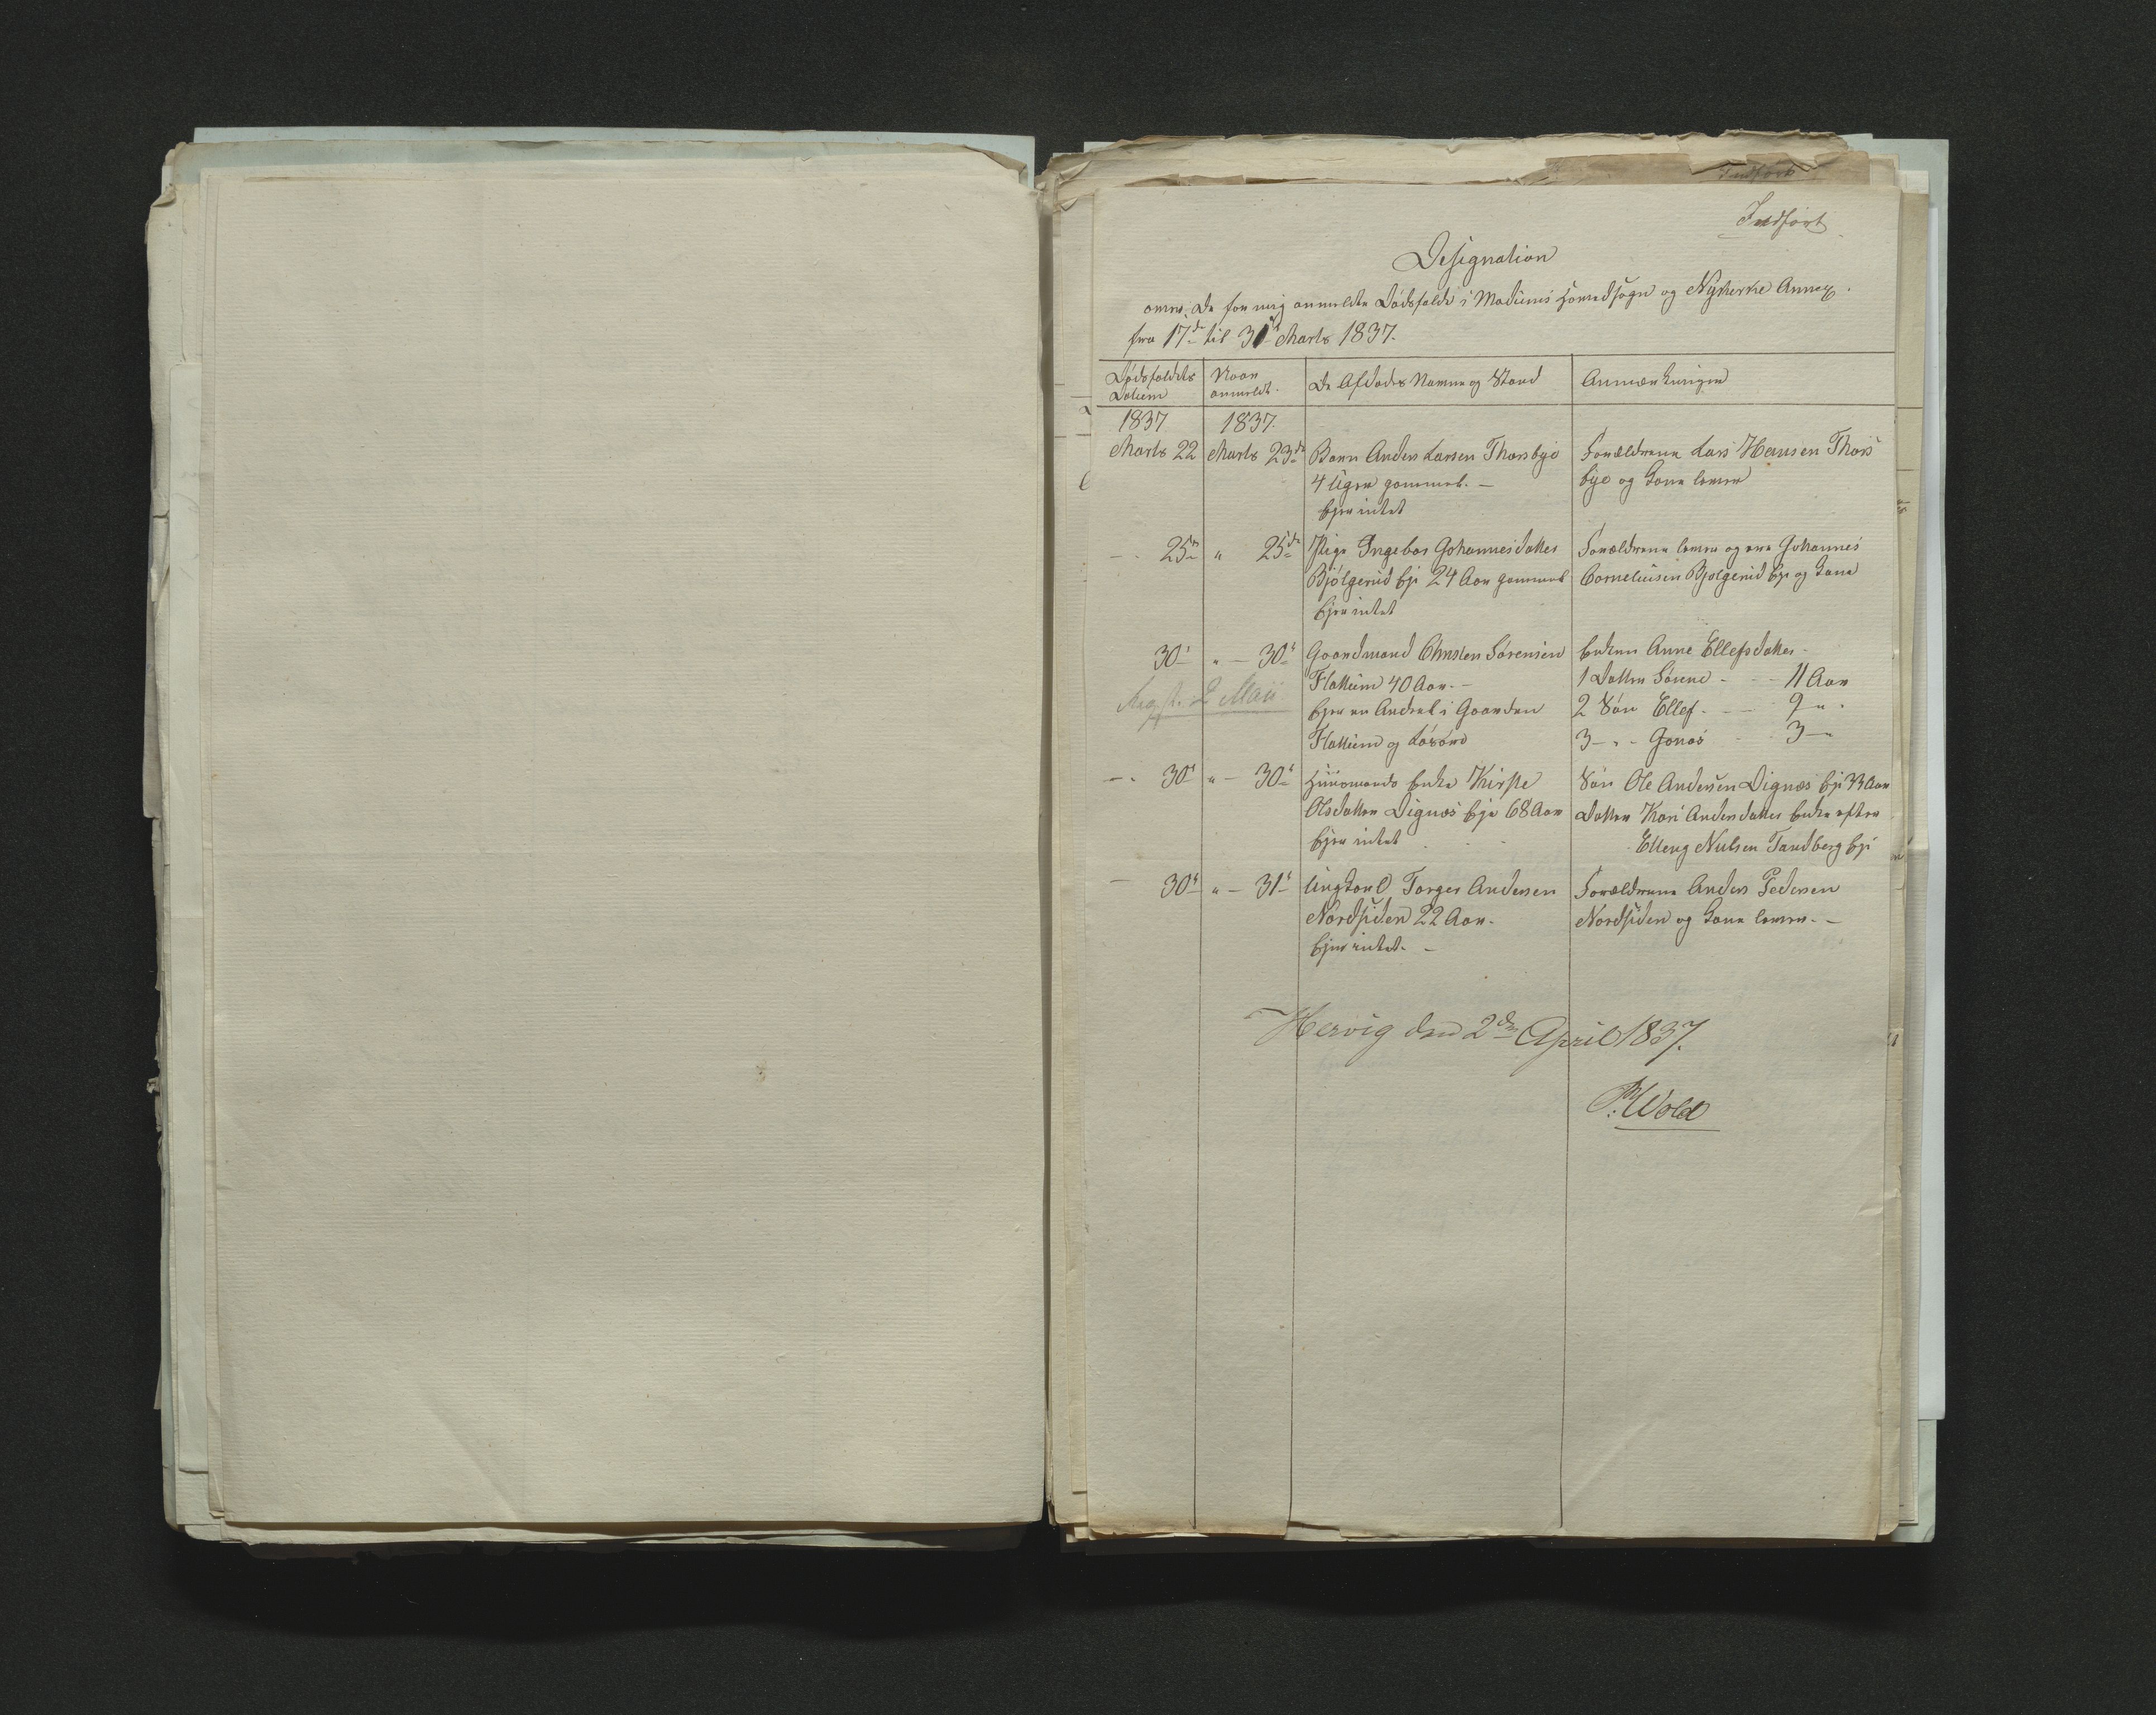 Indført
Indført
Designation
over de for mig anmeldte Dødsfalde i Modums Hovedsogn og Nykirke Annex.
fra 17de til 31te Marts 1837.
Dødsfaldets Datum
Naar anmeldt.
De Afdødes Navne og Stand
Anmærkninger
1837 1837.
Marts 22 Marts 23de Barn Anders Larsen Thorsbye Forældrene Lars Hansen Thors
4 Uger gammel. — bye og Kone lever
Ejer intet
— 25de " 25de Pige Ingebor Johannesdatter Forældrene lever og ere Johannes
Bjølgerud Eje 24 Aar gammel Corneliusen Bjølgerud Eje og Kone
Ejer intet
30te " — 30te Gaardmand Christen Sørensen Enken Anne Ellefsdatter —
Flattum 40 Aar. — 1 Datter Sørine — 11 Aar
2 Maii
Ejer en Andeel i Gaarden 2 Søn Ellef. — 9 — " .
Flattum og Løsøre 3 — " — Jonas 3 —
— 30te " — 30te Huusmands Enke Kirste Søn Ole Andersen Dignæs Eje 33 Aar
Olsdatter Dignæs Eje 68 Aar Datter Kari Andersdatter Enke efter
Ejer intet Elling Nielsen Tandberg Eje
— 30te " — 31te Ungkarl Torger Andersen Forældrene Anders Pedersen
Nordsiden 22 Aar. Nordsiden og Kone lever. —
Ejer intet. —
Hervig den 2den April 1837.
Wold